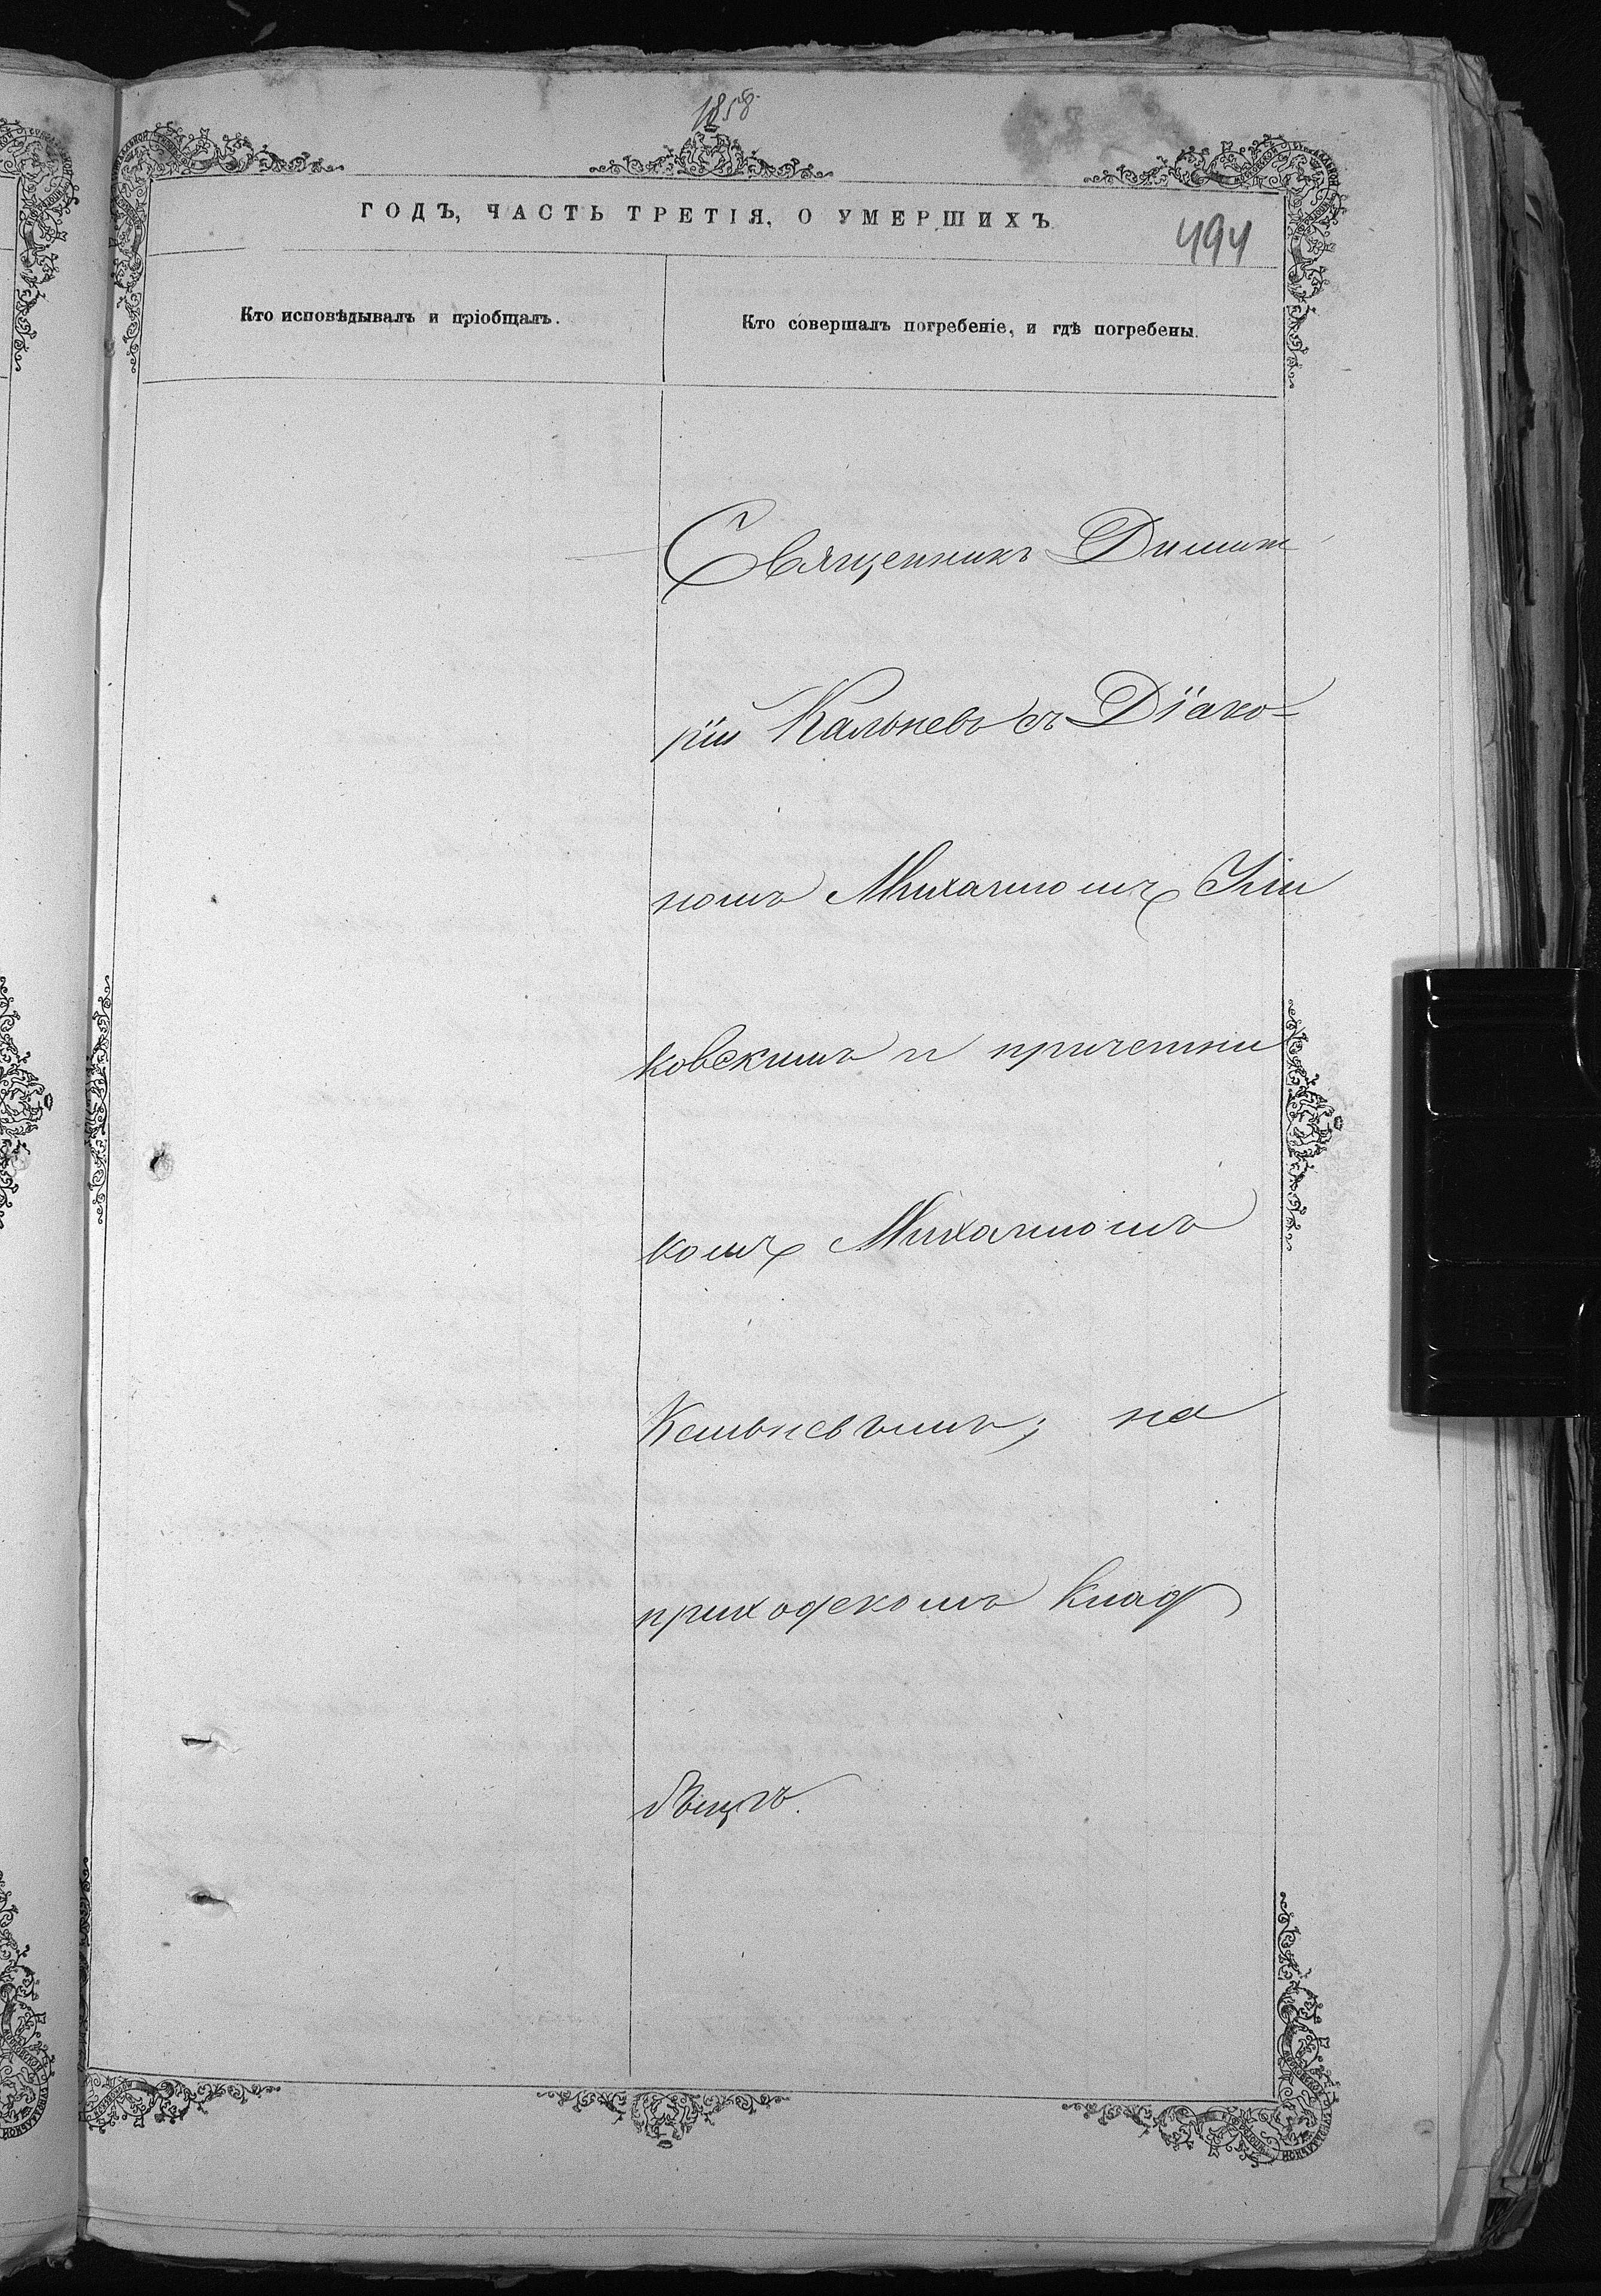 1858
ГОДЪ, ЧАСТЬ ТРЕТІЯ, О УМЕРШИХЪ
494
Кто исповѣдывалъ и пріобщалъ.
Кто совершалъ погребеніе, и гдѣ погребены.
Священникъ Димит
рій Кальневъ съ Діако-
номъ Михаиломъ
ковскимъ и причетни
комъ Михаиломъ
Кальневымъ; на
приходскомъ клад
бищѣ.